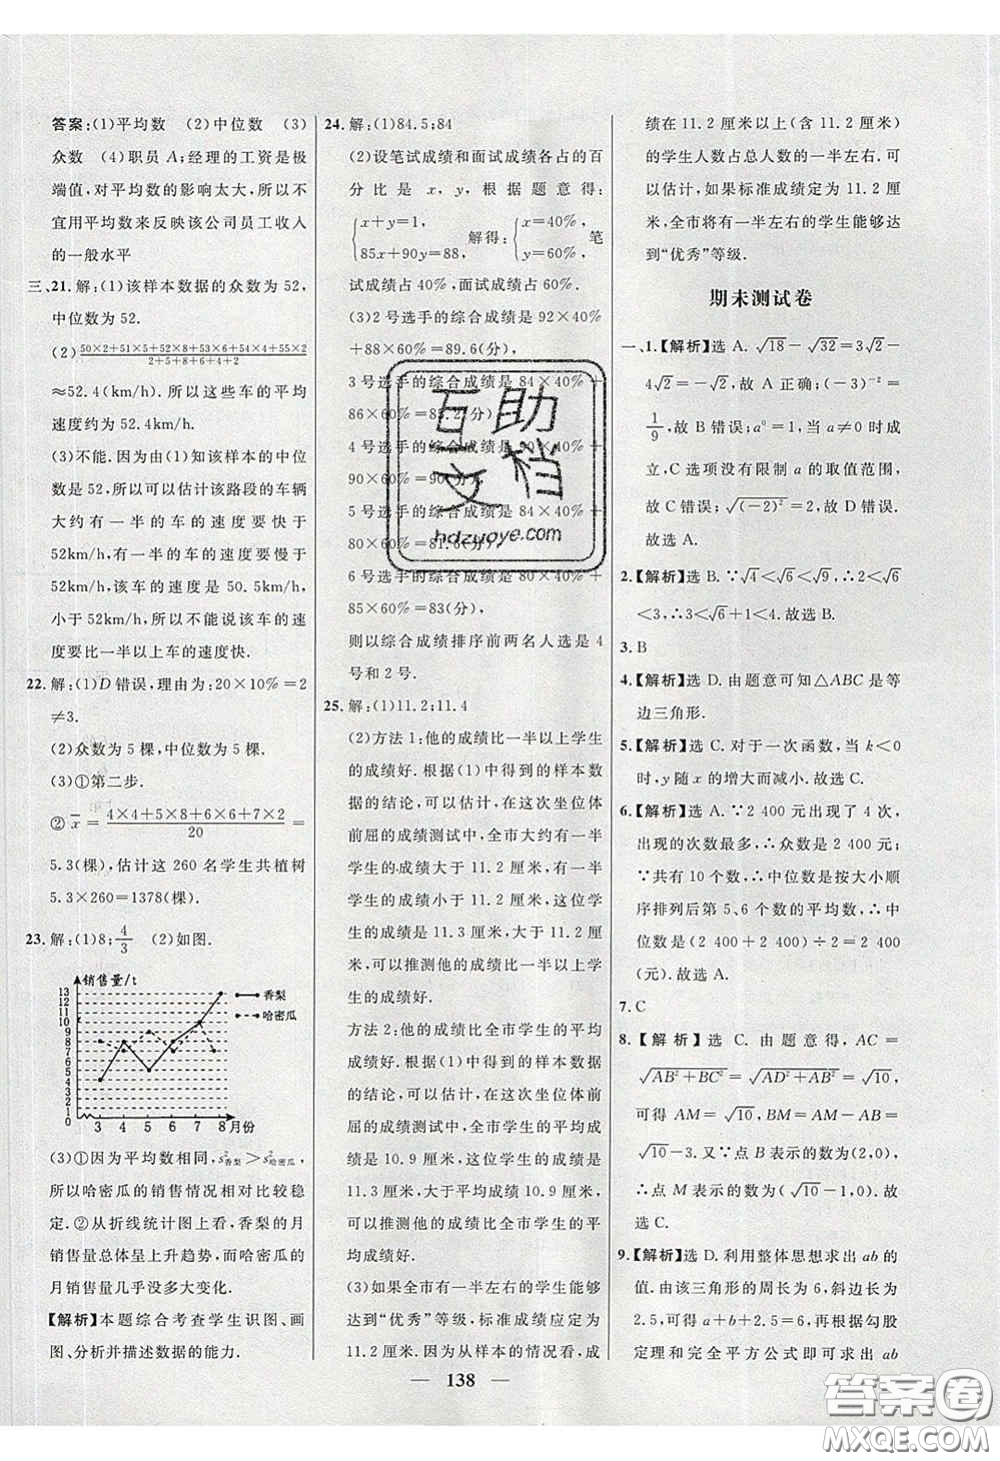 答案:(1)平均数 (2)中位数 (3)
众数 (4)职员 A;经理的工资是极
端值,对平均数的影响太大,所以不
宜用平均数来反映该公司员工收入
的一般水平
三、21.解:(1)该样本数据的众数为52,
中位数为52.
(2) (50×2+51×5+52×8+53×6+54×4+55×2)/(2+5+8+6+4+2)
≈52.4(km/h).所以这些车的平均
速度约为52.4km/h.
(3)不能.因为(1)知该样本的中位
数是52,所以可以估计该路段的车辆
大约有一半的车的速度要快于
52km/h,有一半的车的速度要慢于
52km/h,该车的速度是50.5km/h,
小于52km/h,所以不能说该车的速
度要比一半以上车的速度快.
22.解:(1)D错误,理由为:20×10%=2
≠3.
(2)众数为5棵,中位数为5棵.
(3)①第二步.
② x̄=(4×4+5×8+6×6+7×2)/20=
5.3(棵),估计这260名学生共植树
5.3×260=1378(棵).
23.解:(1)8;4/3 (2)如图.
销售量/t
香梨
哈密瓜
13
12
11
10
9
8
7
6
5
4
3
2
1
0
3 4 5 6 7 8 月份
(3)①因为平均数相同,s²香梨>s²哈密瓜,
所以哈密瓜的销售情况相对比较稳
定.②从折线统计图上看,香梨的月
销售量总体呈上升趋势,而哈密瓜的
月销售量几乎没多大变化.
【解析】本题综合考查学生识图、画
图、分析并描述数据的能力.
24.解:(1)84.5;84
(2)设笔试成绩和面试成绩各占的百
分比是x,y,根据题意得:
{x+y=1, 85x+90y=88 解得:{x=40%, y=60%. 笔
试成绩占40%,面试成绩占60%.
(3)2号选手的综合成绩是92×40%
+88×60%=89.6(分),
3号选手的综合成绩是84×40%+
86×60%=85.2(分),
4号选手的综合成绩是90×40%+
90×60%=90(分),
5号选手的综合成绩是84×40%+
80×60%=81.6(分),
6号选手的综合成绩是80×40%+
85×60%=83(分),
则以综合成绩排序前两名人选是4
号和2号.
25.解:(1)11.2;11.4
(2)方法1:他的成绩比一半以上学生
的成绩好.根据(1)中得到的样本数
据的结论,可以估计,在这次坐位体
前屈的成绩测试中,全市大约有一半
学生的成绩大于11.2厘米,有一半
学生的成绩小于11.2厘米,这位学
生的成绩是11.3厘米,大于中位数
11.2厘米,可以推测他的成绩比一
半以上学生的成绩好.
方法2:他的成绩比全市学生的平均
成绩好.根据(1)中得到的样本数据
的结论,可以估计,在这次坐位体前屈
的成绩测试中,全市学生的平均成
绩是10.9厘米,这位学生的成绩是
11.3厘米,大于平均成绩10.9厘米,
可以推测他的成绩比全市学生的平
均成绩好.
(3)如果全市有一半左右的学生能够
达到“优秀”等级,标准成绩应定为
11.2厘米.因为从样本的情况看,成
绩在11.2厘米以上(含11.2厘米)
的学生人数占总人数的一半左右.可
以估计,如果标准成绩定为11.2厘
米,全市将有一半左右的学生能够达
到“优秀”等级.
期末测试卷
一、1.【解析】选A.√18-√32=3√2-
4√2=-√2,故A正确;(-3)⁻²=
1/9,故B错误;a⁰=1,当a≠0时成
立,C选项没有限制a的取值范围,
故C错误;√(-2)²=2,故D错误.
故选A.
2.【解析】选B.∵√4<√6<√9,∴2<√6
<3,∴3<√6+1<4.故选B.
3.B
4.【解析】选D.由题意可知△ABC是等
边三角形.
5.【解析】选C.对于一次函数,当k<0
时,y随x的增大而减小.故选C.
6.【解析】选A.∵2 400元出现了4次,
出现的次数最多,∴众数是2 400元;
∵共有10个数,∴中位数是按大小顺
序排列后第5、6个数的平均数,∴中
位数是(2 400+2 400)÷2=2 400
(元).故选A.
7.C
8.【解析】选C.由题意得,AC=
√AB²+BC²=√AD²+AB²=√10,
可得AM=√10,BM=AM-AB=
√10-3.又∵点B表示的数为(2,0),
∴点M表示的数为(√10-1,0).故
选C.
9.【解析】选D.利用整体思想求出ab的
值.由该三角形的周长为6,斜边长为
2.5,求得a+b+2.5=6,再根据勾股
定理和完全平方公式即可求出ab
138
互助
文档
hdzuoye.com
答案圈
MXQE.COM